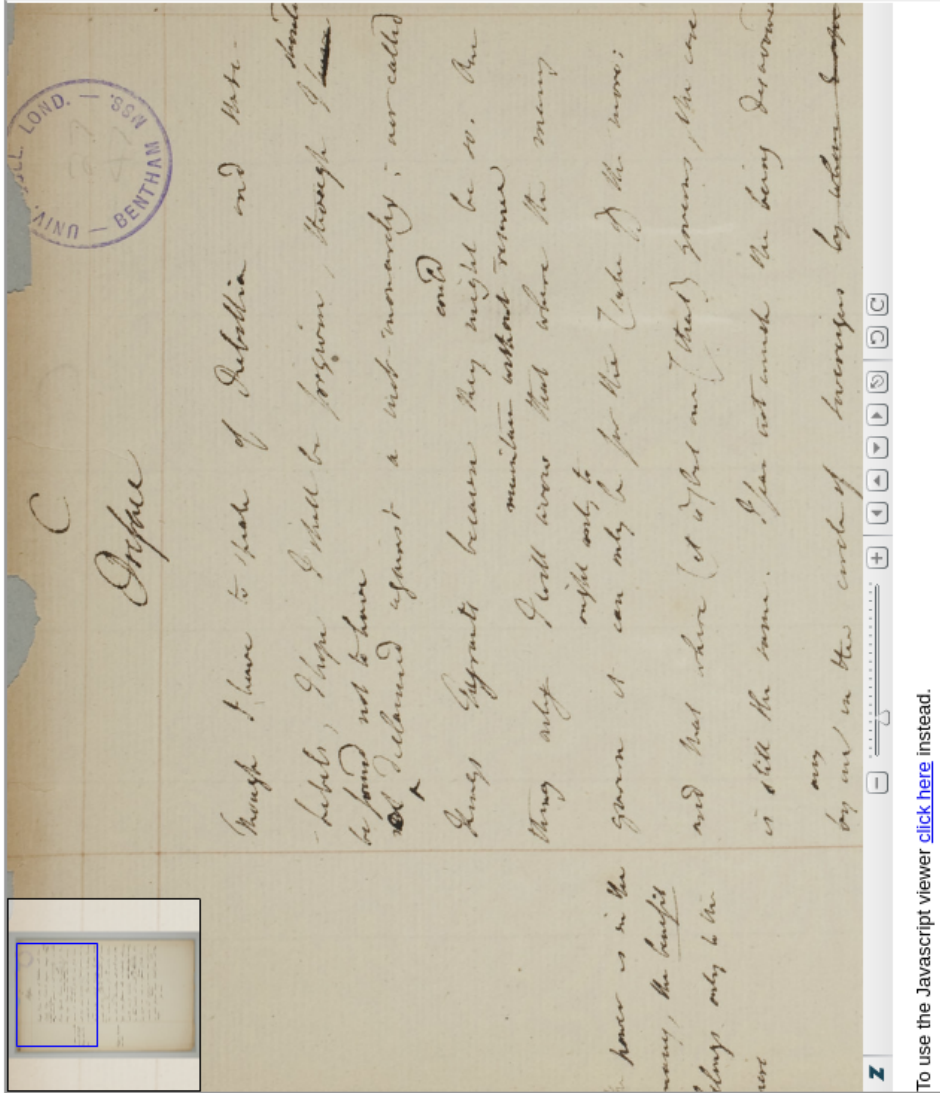 UNIV. COLL. LOND. — BENTHAM MSS. —
C
Preface
Though I have to speak of Rebellion and Rebels, I hope I shall be forgiven, though I should
be found not to have
declaimed against a not-monarchy; nor called
could
Kings Tyrants because they might be so. One
maintain without reserve
thing only I will avow that where the many
ought only to
govern it can only be for their (take) the more;
and that where (et is) but one (that) governs, the case
is still the same. I fear not amidst the being disavowed
any
by one in the circle of sovereigns by whom
power is in the
many, the benefit
belongs only to the
To use the Javascript viewer click here instead.